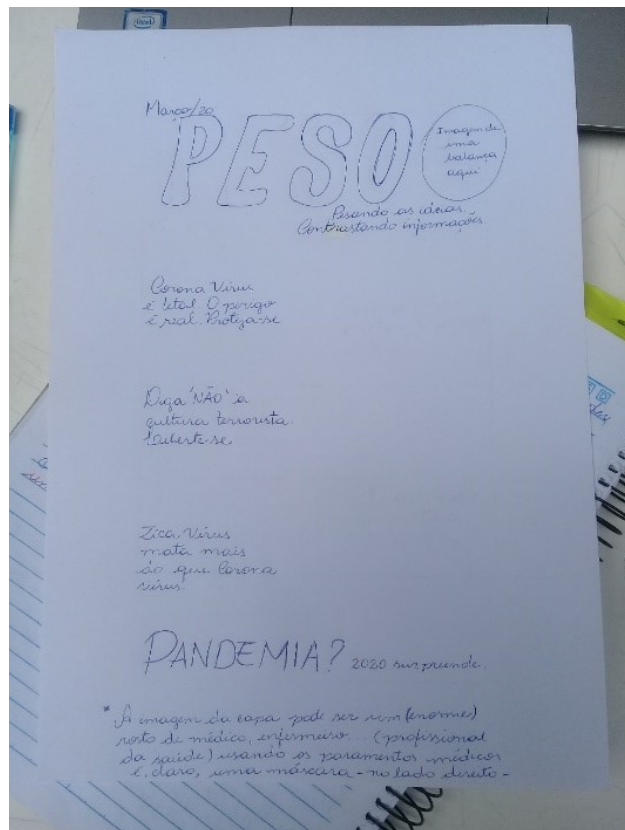 intel
Março/20
PESO
Imagem de
uma
balança
aqui
Pesando as ideias.
Contrastando informações.
Corona Vírus
é letal. O perigo
é real. Proteja-se
Diga 'NÃO' a
cultura terrorista.
Liberte-se
Zica Vírus
mata mais
do que Corona
vírus.
PANDEMIA? 2020 surpreende.
* A imagem da capa pode ser um (enorme)
rosto de médico, enfermeiro... (profissional
da saúde) usando os paramentos médicos
e, claro, uma máscara - no lado direito -